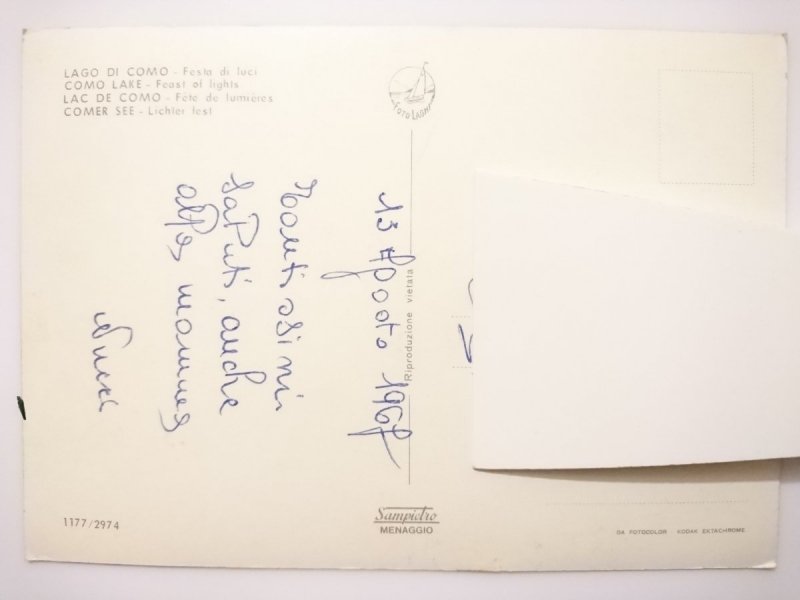 LAGO DI COMO - Festa di luci
COMO LAKE - Feast of lights
LAC DE COMO - Fête de lumières
COMER SEE - Lichter fest
FOTO LAGHI
13 Agosto 1967
Tantissimi
saluti, anche
alla mamma
Riproduzione vietata
1177/2974
Sampietro
MENAGGIO
DA FOTOCOLOR - KODAK EKTACHROME